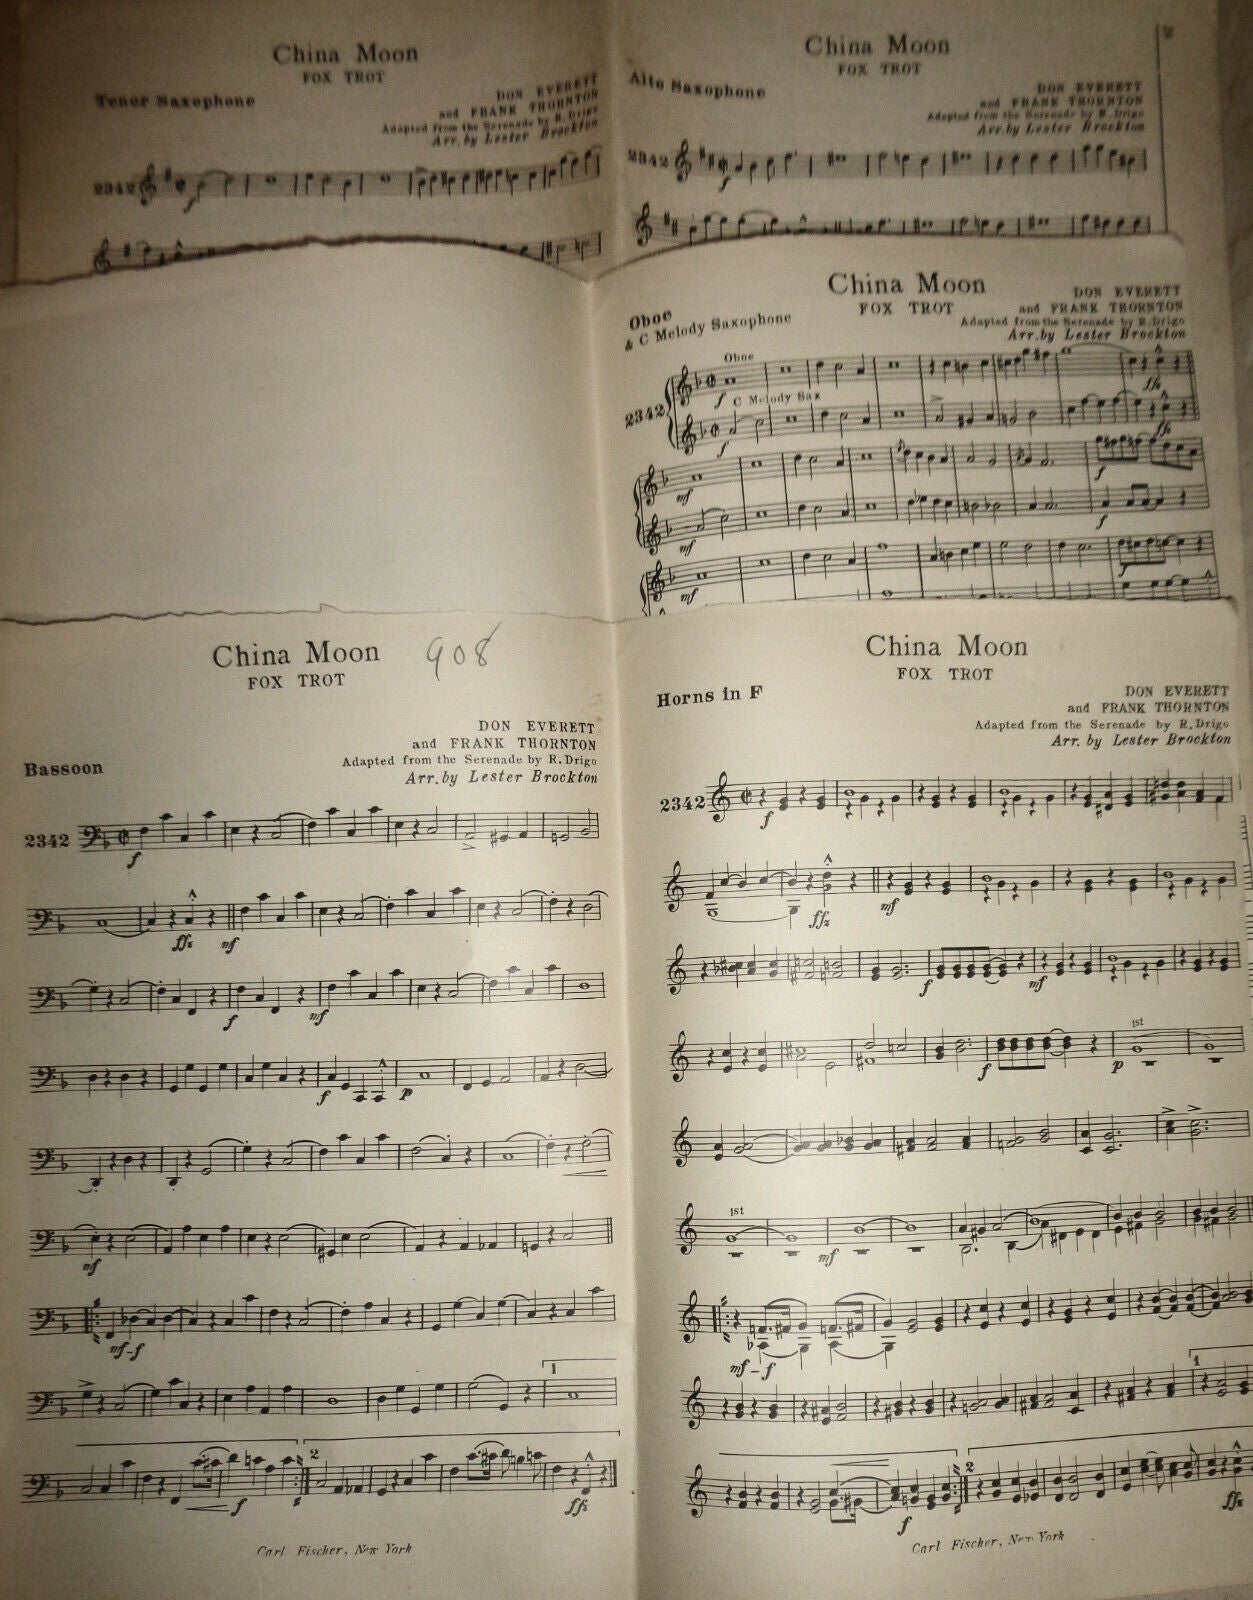 China Moon
FOX TROT
Tenor Saxophone
DON EVERETT
and FRANK THORNTON
Adapted from the Serenade by R. Drigo
Arr. by Lester Brockton
2342
f
China Moon
FOX TROT
Alto Saxophone
DON EVERETT
and FRANK THORNTON
Adapted from the Serenade by R. Drigo
Arr. by Lester Brockton
2342
f
China Moon
FOX TROT
Oboe
& C Melody Saxophone
DON EVERETT
and FRANK THORNTON
Adapted from the Serenade by R. Drigo
Arr. by Lester Brockton
Oboe
2342
f C Melody Sax ffz
f ffz
mf f
mf f
mf f
China Moon 908
FOX TROT
Bassoon
DON EVERETT
and FRANK THORNTON
Adapted from the Serenade by R. Drigo
Arr. by Lester Brockton
2342
f
ffz mf
f mf
f p
mf
mf-f
1
2
f ffz
Carl Fischer, New York
China Moon
FOX TROT
Horns in F
DON EVERETT
and FRANK THORNTON
Adapted from the Serenade by R. Drigo
Arr. by Lester Brockton
2342
f
ffz mf
f mf
1st
f p
1st
mf
mf-f
1
2
f ffz
Carl Fischer, New York